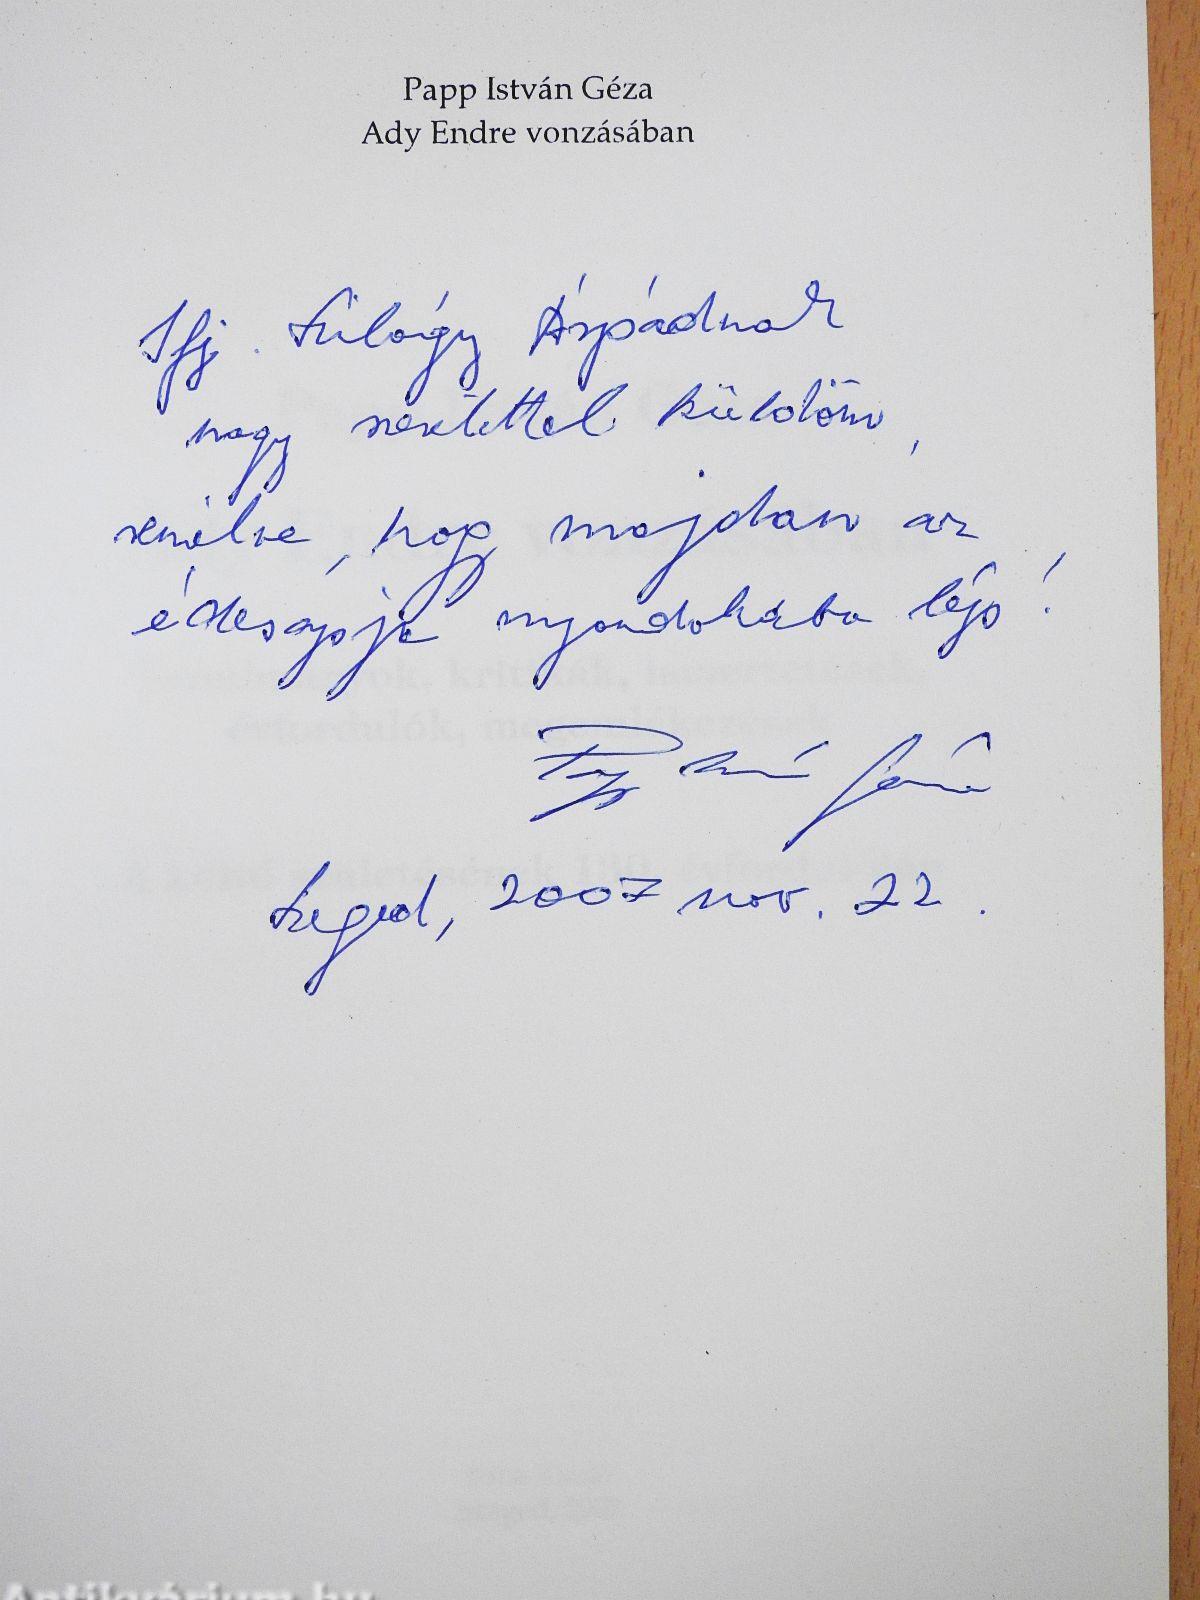 Papp István Géza
Ady Endre vonzásában
Ifj. Szilágyi Árpádnak
nagy szeretettel küldöm,
remélve, hogy majdan az
édesapja nyomdokába lép!
Papp István Géza
Szeged, 2007 nov. 22.
Antikvárium.hu